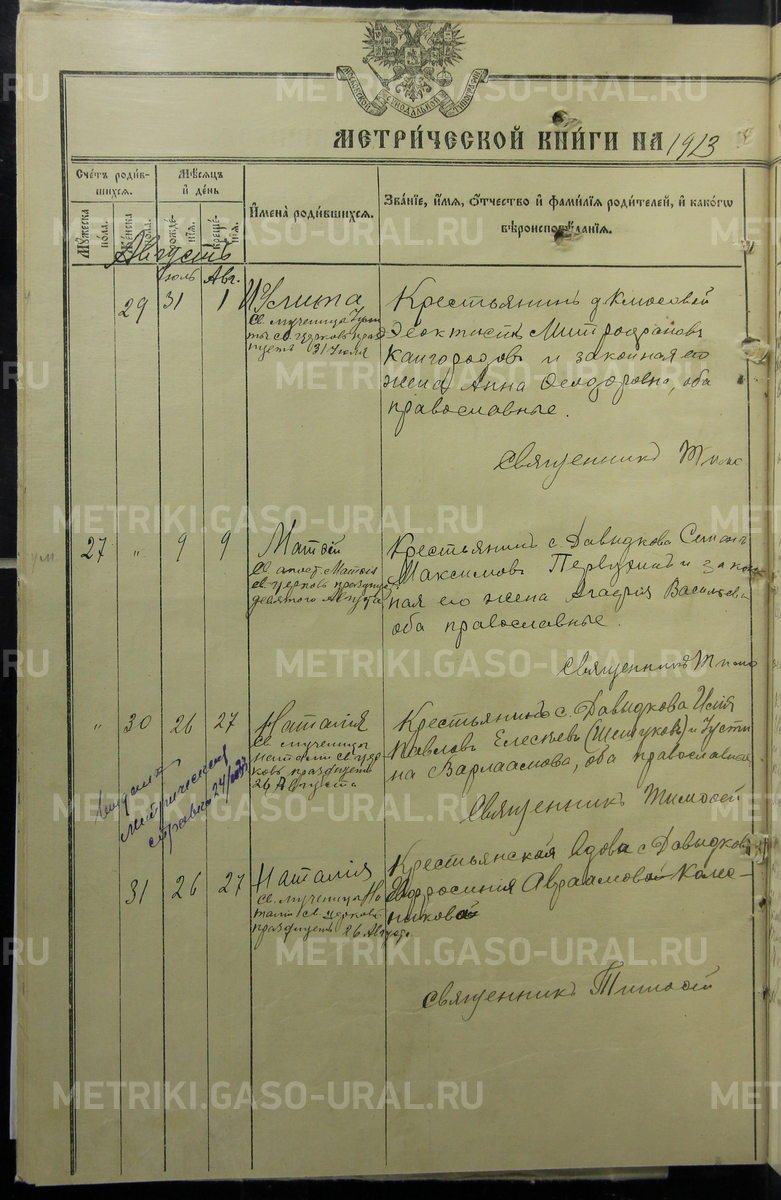 МЕТРИ́ЧЕСКОЙ КНИ́ГИ НА 1913
Сче́тъ роди́в-
шихся.
Му́жеска
по́ла.
Же́нска
по́ла.
Мѣ́сяцъ
и́ де́нь
рожде́-
нїя.
креще́-
нїя.
И҆мена̀ роди́вшихся.
Зва́нїе, и҆́мя, о҆́тчество и҆ фами́лїя роди́телей, и҆ како́гѡ
вѣроисповѣ́данїя.
Августъ
Іюль Авг.
29 31 1 Иустина
Св. мученица
св. церковь праз
нуетъ 31 Іюля
Крестьянинъ д.
Феоктистъ Митрофановъ
Кайгородовъ и законная его
жена Анна Феодоровна, оба
православные.
Священникъ Тимо
ум.
27 " 9 9 Матѳей
Св. апост. Матѳія
св. церковь празднуе
девятого Августа
Крестьянинъ с. Давыдкова Семенъ
Максимовъ Первухинъ и закон
ная его жена Агафія Васильева
оба православные.
Священникъ Тимо
" 30 26 27 Наталія
Св. мученицы
Наталіи св. цер
ковь празднуетъ
26 Августа
Крестьянинъ с. Давыдкова Илія
Павловъ Елесѣевъ и Іусти
на Варлаамова, оба православные
Священникъ Тимоѳей
метрическая
справка
31 26 27 Наталія
Св. мученицы На
таліи св. церковь
празднуетъ 26 Август.
Крестьянская вдова с. Давыдкова
Евфросинія Авраамова Колес-
никова
Священникъ Тимоѳей
METRIKI.GASO-URAL.RU